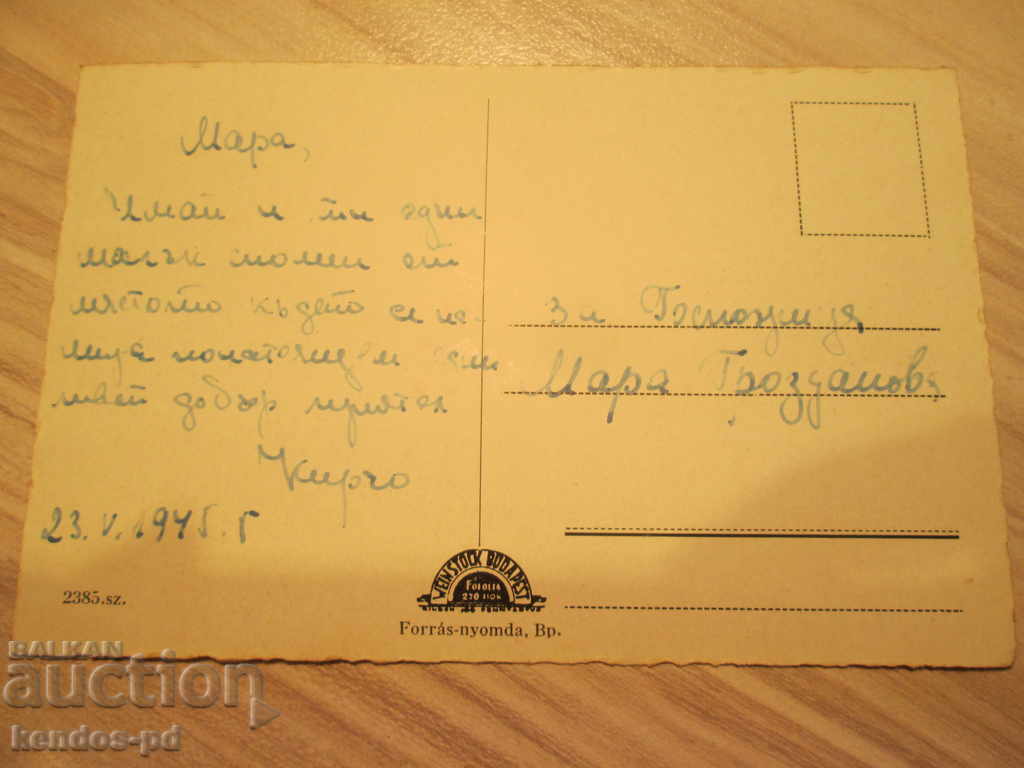 Мара,
Имай и ти един
малък спомен от
мястото където се на-
мира понастоящем
твой добър приятел
Кирчо
23.V.1945 г
За Госпожица
Мара Грозданова
2385.sz.
WEINSTOCK BUDAPEST
FOTOLIA
Forrás-nyomda, Bp.
BALKAN
auction
kendos-pd